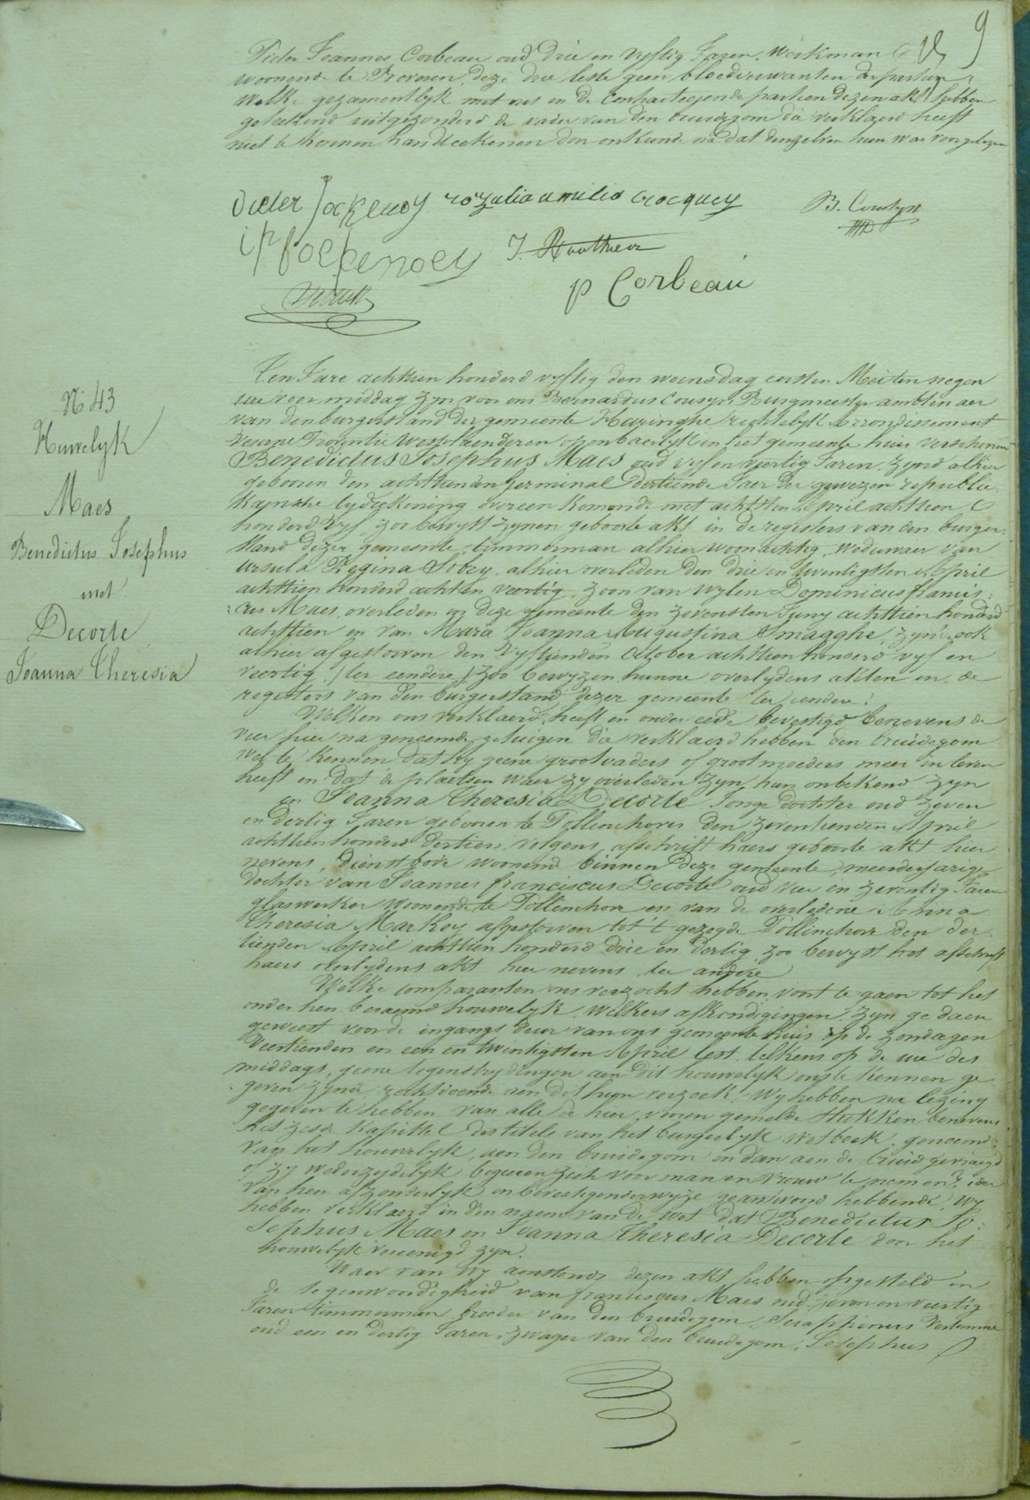 9
Pieter Joannes Corbeau oud drie en vyftig Jaren, werkman
woonende te Beveren, deze drie leste geen bloedverwanten der partien
welke gezamentlyk met ons en de contracteerende partien dezen akt hebben
geteekend uitgezonderd de vader van den bruidegom die verklaerd heeft
niet te konnen handteekenen door onkunde na dat denzelven hun was voorgelezen
rozalia amelia Crocquey
B. Cousyn
p Corbeau
Ten Jare achttien honderd vyftig den woensdag eersten Mei ten negen
ure voor middag zyn voor ons Bernardus Cousyn, Burgmeester ambtenaer
van den burgerstand der gemeente regtelyk arrondissement
Veurne Provintie Westvlaenderen openbaerlyk in het gemeente huis verschenen
N: 43
Huwelyk
Maes
Benedictus Josephus
met
Decorte
Joanna Theresia
Benedictus Josephus Maes oud vyf en veertig Jaren, zynde alhier
geboren den achttienden Germinal dertiende Jaer der gewezen republie
kaynsche tydrekening overeen komende met achtsten April achttien
honderd vyf zoo bewyst zynen geboorte akt in de registers van den burger
stand dezer gemeente, timmerman alhier woonachtig, weduwaer van
Ursula Regina alhier overleden den drie en twentigsten April
achttien honderd acht en veertig, zoon van wylen Dominicus francis
cus Maes, overleden op deze gemeente den zevensten Juny achttien honderd
achttien en van Maria Joanna Augustina Smagghe, zynde ook
alhier afgestorven den vyftienden October achttien honderd vyf en
veertig, (ter eendere) zoo bewyzen hunne overlydens akten in de
registers van den burgerstand dezer gemeente ter eendere:
Welken ons verklaerd heeft en onder eede bevestigd benevens de
vier hier na genoemde getuigen die verklaerd hebben den bruidegom
wel te kennen dat hy geene grootvaders of grootmoeders meer in leven
heeft en dat de plaetsen waer zy overleden zyn hun onbekend zyn
en Joanna Theresia Decorte Jonge dochter oud zeven
en dertig Jaren geboren te Pollinchove den zeventienden April
achttien honderd dertien, volgens afschrift haers geboorte akt hier
nevens, dienstbode woonende binnen deze gemeente, meerderjarige
dochter van Joannes franciscus Decorte oud vier en zeventig Jaren
glaswerker woonende te Pollinchove en van de overledene Anna
Theresia Markey afgestorven tot 't gezegde Pollinchove den der
tienden April achttien honderd drie en dertig, zoo bewyst het afschrift
haers overlydens akt hier nevens, ter andere
Welke comparanten ons verzocht hebben voort te gaen tot het
onder hen beraemd houwelyk, welkers afkondigingen zyn gedaen
geweest voor de ingangs deur van ons gemeente huis op de zondagen
veertienden en een en twintigsten April lest, telkens op de ure des
middags, geene tegenstrydingen aen dit houwelyk ons te kennen ge
geven zynde, voldoende aen dit hun verzoek, Wy hebben na lezing
gegeven te hebben van alle de hier voren gemelde stukken benevens
het zesde kapittel des titels van het burgerlyk wetboek, genoemd
van het houwelyk, aen den bruidegom en dan aen de bruid gevraegd
of zy wederzydelyk begeeren zich voor man en vrouw te nemen? ider
van hen afzonderlyk en bevestigender wyze geantwoord hebbende, Wy
hebben verklaerd in den naem van de wet dat Benedictus Jo
sephus Maes en Joanna Theresia Decorte door het
houwelyk vereenigd zyn.
Waer van Wy aenstonds dezen akt hebben opgesteld in
de tegenwoordigheid van franciscus Maes oud zeven en veertig
Jaren timmerman broeder van den bruidegom,
oud een en dertig Jaren, zwager van den bruidegom, Josephus